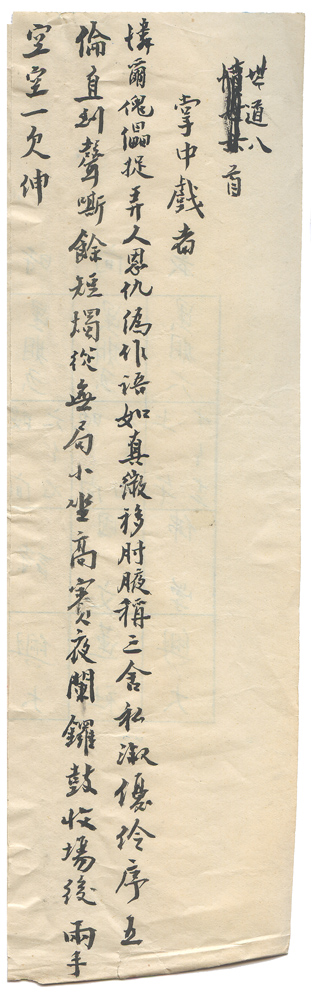 世道八首
掌中戲者
憐爾傀儡捉弄人恩仇偽作語如真微移肘腋稱三舍私淑優伶序五
倫直到聲嘶餘短燭從無局小坐高賓夜闌鑼鼓收場後兩手
空空一欠伸